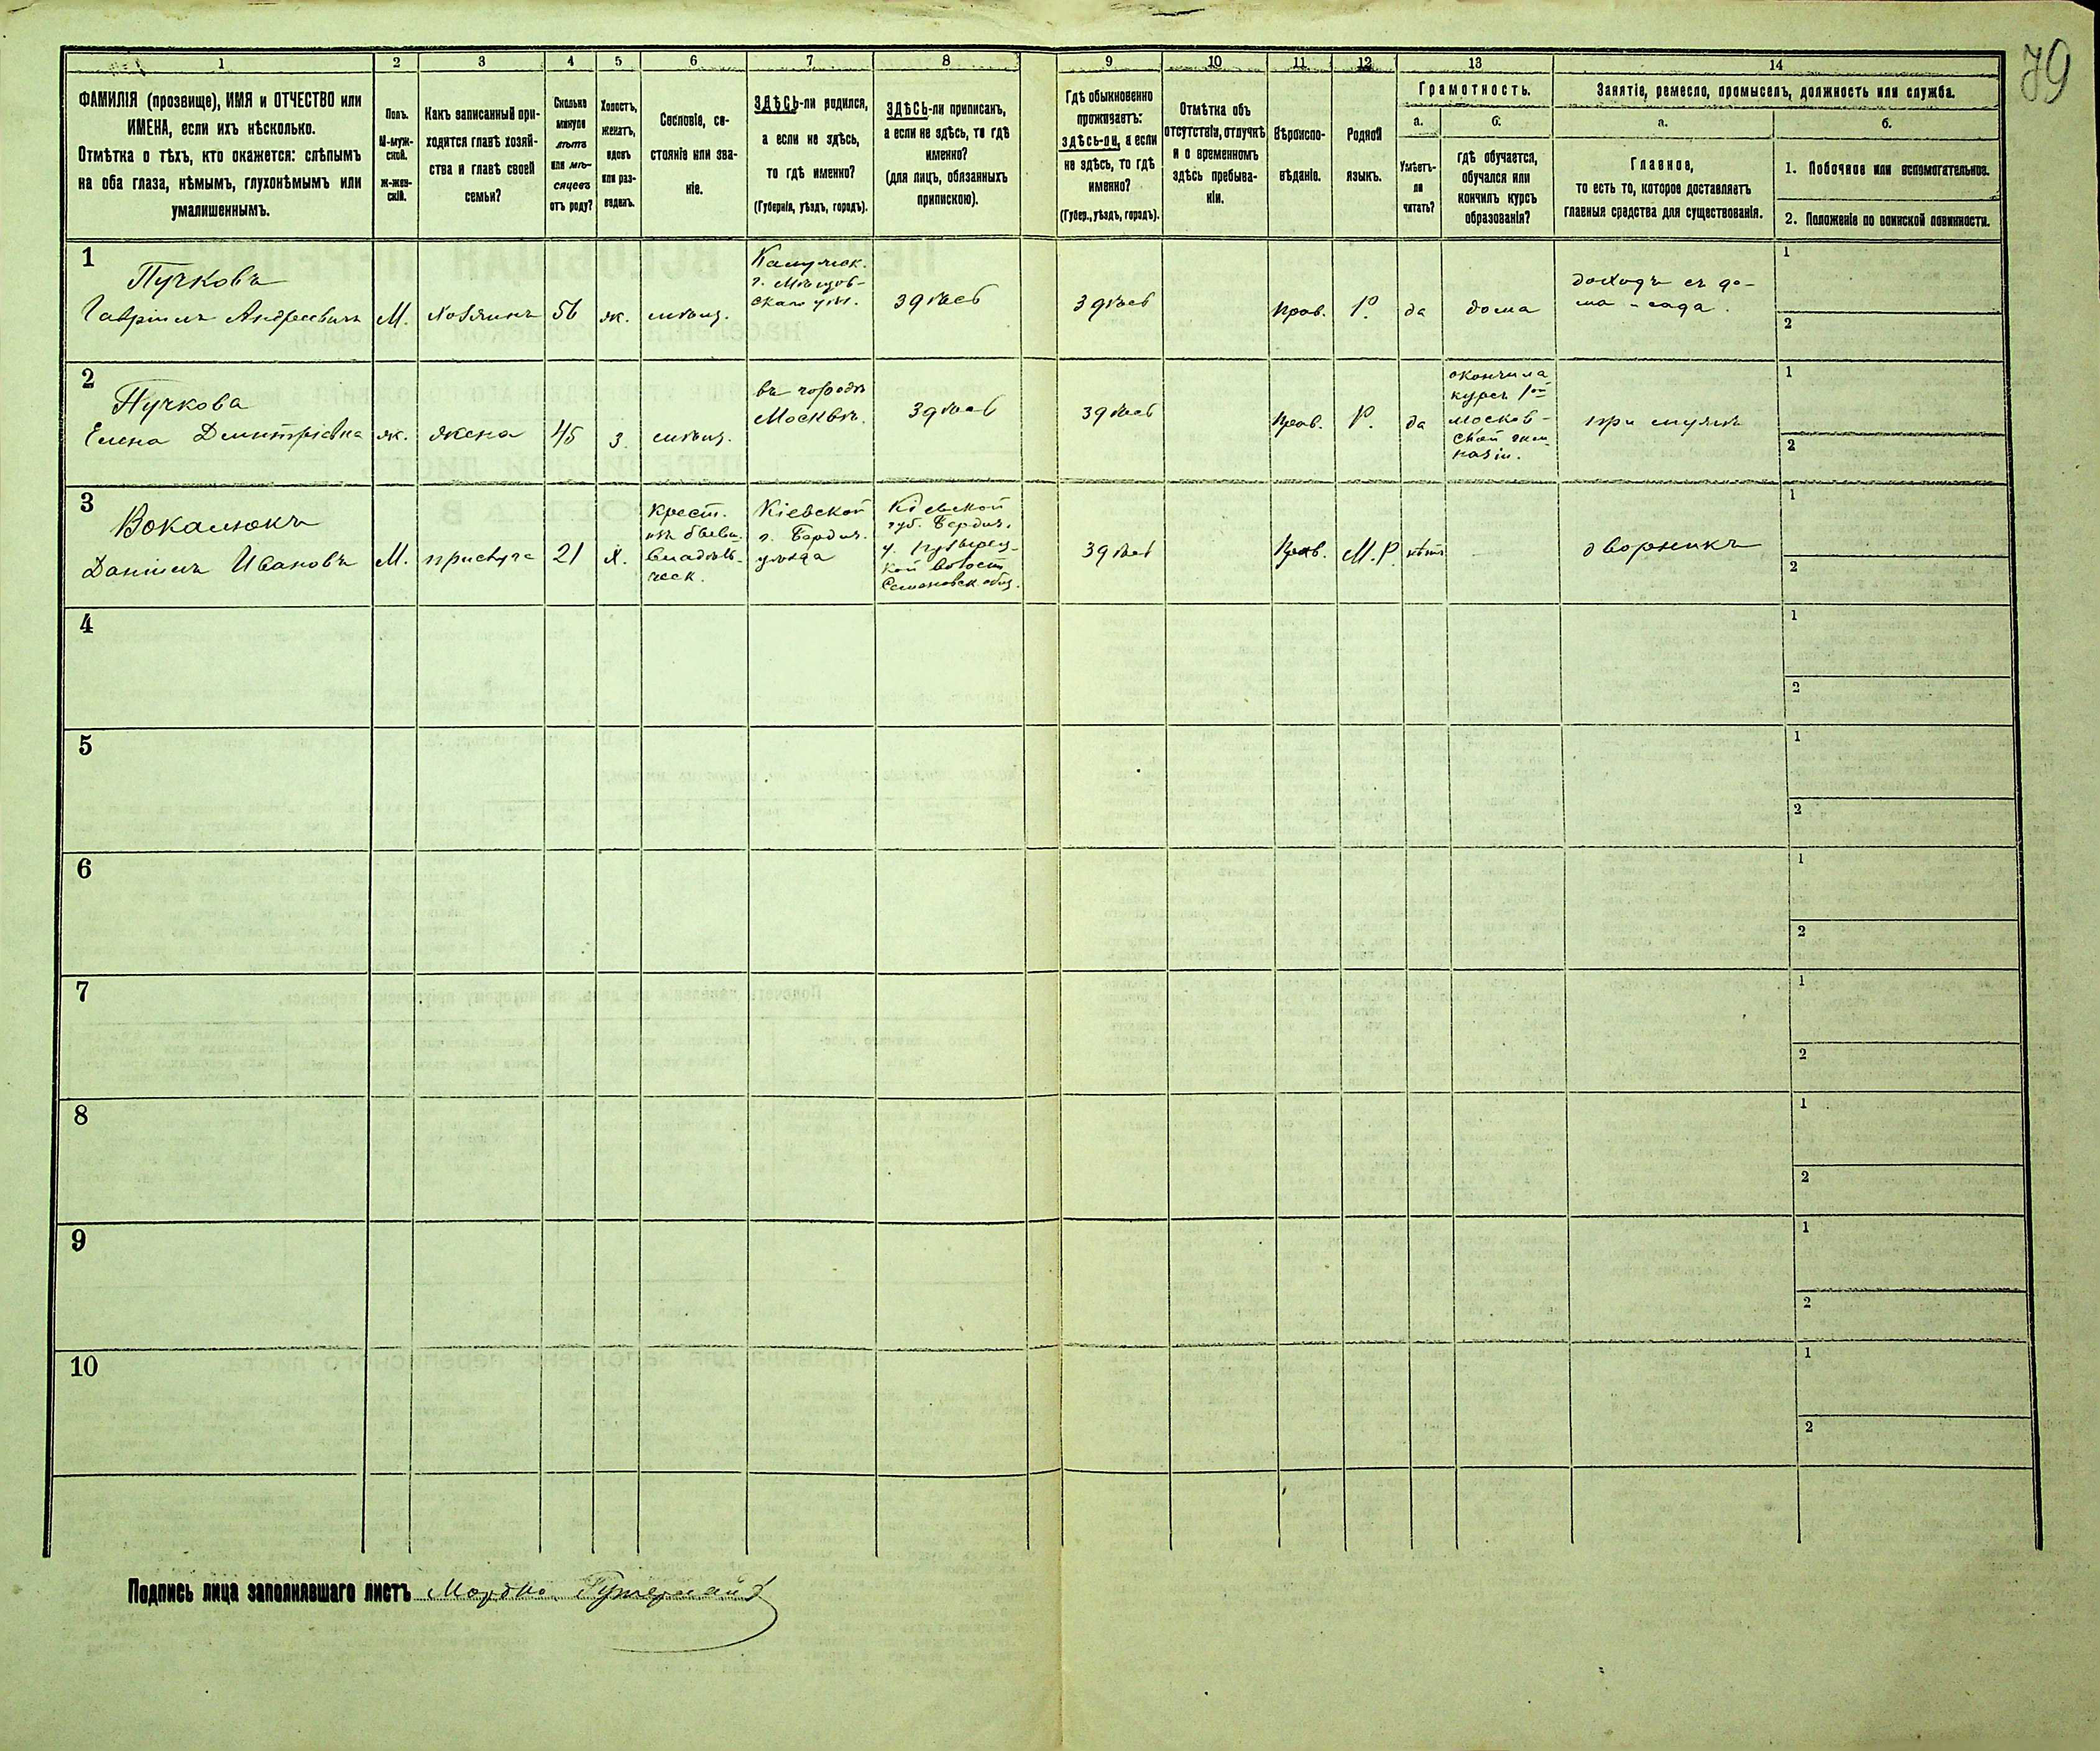 79
1 2 3 4 5 6 7 8 9 10 11 12 13 14
ФАМИЛІЯ (прозвище), ИМЯ и ОТЧЕСТВО или
ИМЕНА, если ихъ нѣсколько.
Отмѣтка о тѣхъ, кто окажется: слѣпымъ
на оба глаза, нѣмымъ, глухонѣмымъ или
умалишеннымъ.
Полъ.
М-муж-
ской.
ж-жен-
скій.
Какъ записанный при-
ходится главѣ хозяй-
ства и главѣ своей
семьи?
Сколько
минуло
лѣтъ
или мѣ-
сяцевъ
отъ роду?
Холостъ,
женатъ,
вдовъ
или раз-
веденъ.
Сословіе, со-
стояніе или зва-
ніе.
ЗДѢСЬ-ли родился,
а если не здѣсь,
то гдѣ именно?
(Губернія, уѣздъ, городъ).
ЗДѢСЬ-ли приписанъ,
а если не здѣсь, то гдѣ
именно?
(для лицъ, обязанныхъ
припискою).
Гдѣ обыкновенно
проживаетъ:
здѣсь-ли, а если
не здѣсь, то гдѣ
именно?
(Губер., уѣздъ, городъ).
Отмѣтка объ
отсутствіи, отлучкѣ
и о временномъ
здѣсь пребыва-
ніи.
Вѣроиспо-
вѣданіе.
Родной
языкъ.
Грамотность.
а.
Умѣетъ-
ли
читать?
б.
гдѣ обучается,
обучался или
кончилъ курсъ
образованія?
Занятіе, ремесло, промыселъ, должность или служба.
а.
Главное,
то есть то, которое доставляетъ
главныя средства для существованія.
б.
1. Побочное или вспомогательное.
2. Положеніе по воинской повинности.
1
Пучковъ
Гавріилъ Андреевичъ
М.
хозяинъ
56
ж.
мѣщ.
Калужск.
г. Мѣщов-
скаго у.
здѣсь
здѣсь
прав.
Р.
да
дома
доходъ съ до-
ма и сада.
1
2
2
Пучкова
Елена Дмитріевна
ж.
жена
45
з.
мѣщ.
въ городѣ
Москвѣ.
здѣсь
здѣсь
прав.
Р.
да
окончила
курсъ 1ой
москов-
ской гим-
назіи.
при мужѣ
1
2
3
Вокалюкъ
Даніилъ Ивановъ
М.
прислуга
21
х.
крест.
изъ бывш.
владѣль-
ческ.
Кіевской
г. Бердич.
уѣзда
Кіевской
губ. Бердич.
у.
кой волости
здѣсь
прав.
М.Р.
нѣтъ
дворникъ
1
2
4
1
2
5
1
2
6
1
2
7
1
2
8
1
2
9
1
2
10
1
2
Подпись лица заполнявшаго листъ Мордко